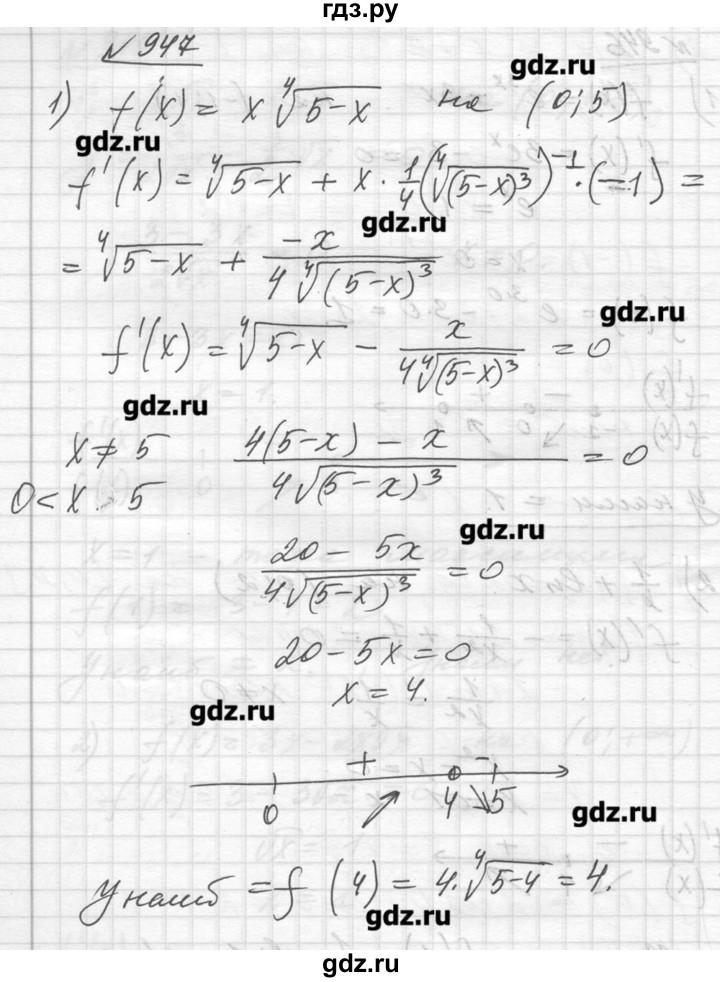 гдз.ру
№ 947
gdz.ru
1) f(x) = x ∜(5-x) на (0;5)
gdz.ru
f'(x) = ∜(5-x) + x · 1/4 (∜((5-x)³))⁻¹ · (-1) =
gdz.ru
= ∜(5-x) + (-x)/(4∜((5-x)³))
gdz.ru
f'(x) = ∜(5-x) - x/(4∜((5-x)³)) = 0
gdz.ru
x ≠ 5 (4(5-x) - x)/(4√((5-x)³)) = 0
0 < x 5
gdz.ru
(20 - 5x)/(4√((5-x)³)) = 0
20 - 5x = 0
x = 4.
gdz.ru
+ -
0 4 5
gdz.ru
y наиб = f (4) = 4 · ∜(5-4) = 4.
gdz.ru
gdz.ru